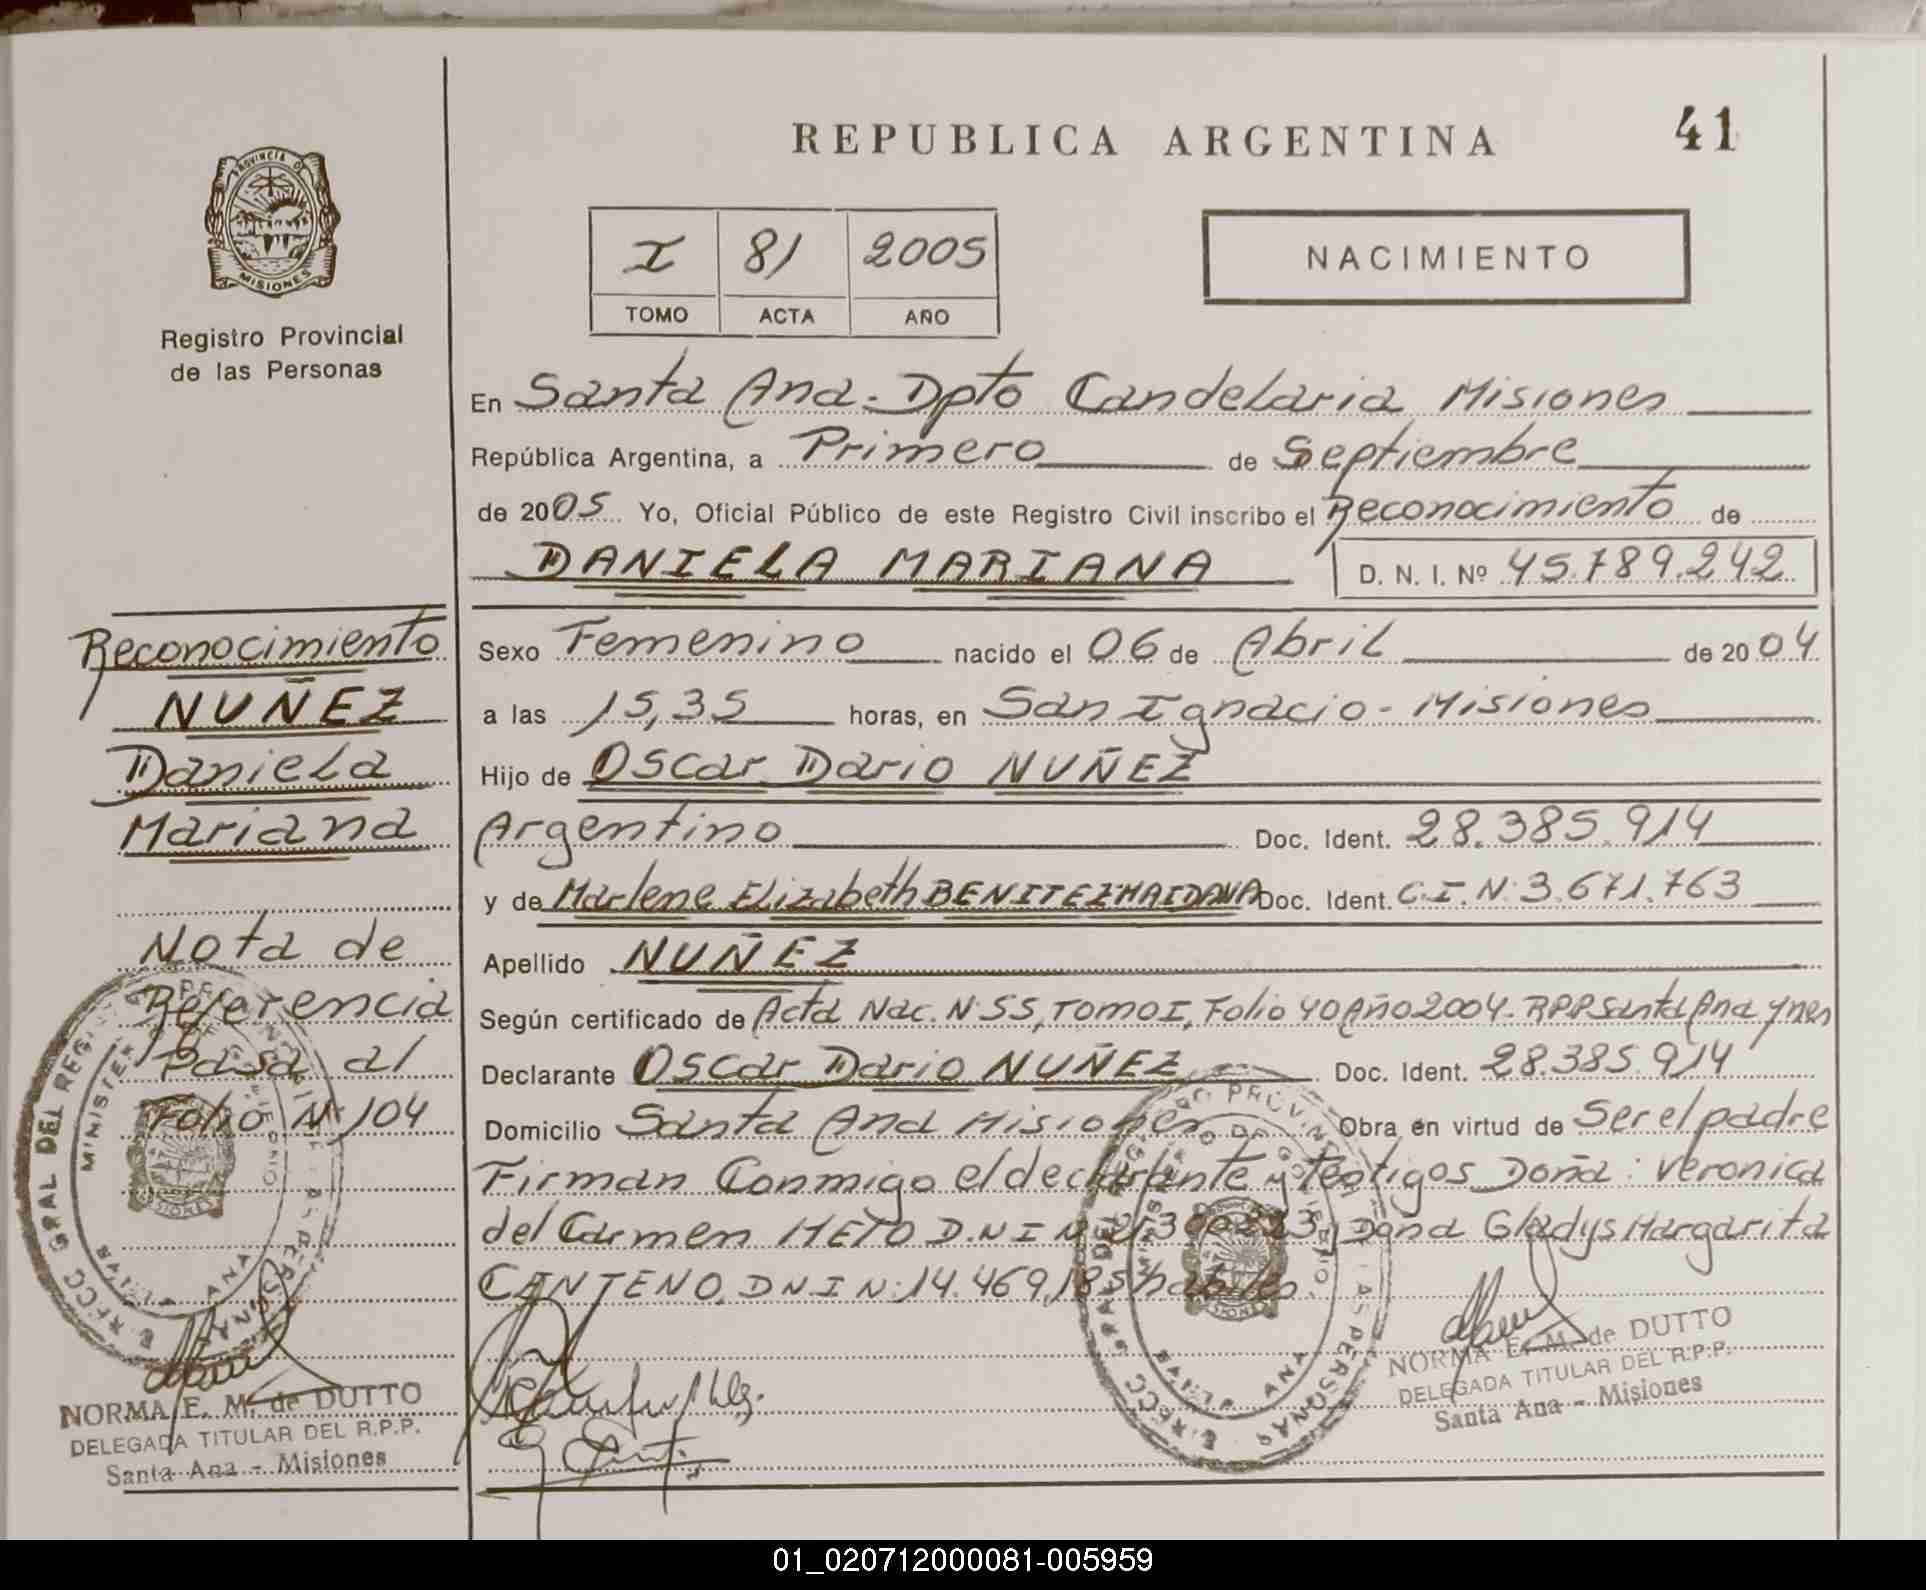 REPUBLICA ARGENTINA
41
PROVINCIA DE
MISIONES
Registro Provincial
de las Personas
I 81 2005
TOMO ACTA AÑO
NACIMIENTO
En Santa Ana - Dpto Candelaria Misiones
República Argentina, a Primero de Septiembre
de 2005 Yo, Oficial Público de este Registro Civil inscribo el Reconocimiento de
DANIELA MARIANA D. N. I. Nº 45.789.242
Sexo Femenino nacido el 06 de Abril de 2004
a las 15,35 horas, en San Ignacio - Misiones
Hijo de Oscar Dario NUÑEZ
Argentino Doc. Ident. 28.385.914
y de Marlene Elizabeth BENITEZ MAIDANA Doc. Ident. C.I.N: 3.671.763
Apellido NUÑEZ
Según certificado de Acta Nac. N: 55, TOMO I, Folio 40 Año 2004. RPP Santa Ana y mes
Declarante Oscar Dario NUÑEZ Doc. Ident. 28.385.914
Domicilio Santa Ana Misiones Obra en virtud de Ser el padre
Firman Conmigo el declarante y testigos Doña: Veronica
del Carmen D.N.I N Doña Gladys Margarita
CENTENO, D N I N: 14.469,185 habiles
NORMA E. M. de DUTTO
DELEGADA TITULAR DEL R.P.P.
Santa Ana - Misiones
Reconocimiento
NUÑEZ
Daniela
Mariana
Nota de
Referencia
Pasa al
Folio N: 104
NORMA E. M. de DUTTO
DELEGADA TITULAR DEL R.P.P.
Santa Ana - Misiones
01_020712000081-005959